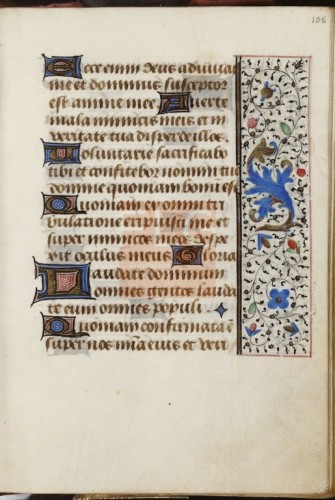 106
Ecce enim deus adiuuat
me et dominus susceptor
est anime mee Auerte
mala inimicis meis et in
veritate tua disperde illos
Voluntarie sacrificabo
tibi et confitebor nomini tuo
domine quoniam bonum est
Quoniam ex omni tri
bulatione eripuisti me et
super inimicos meos despe
xit oculus meus Gloria
Laudate dominum
omnes gentes lauda
te eum omnes populi
Quoniam confirmata ē
super nos mīa eius et veri